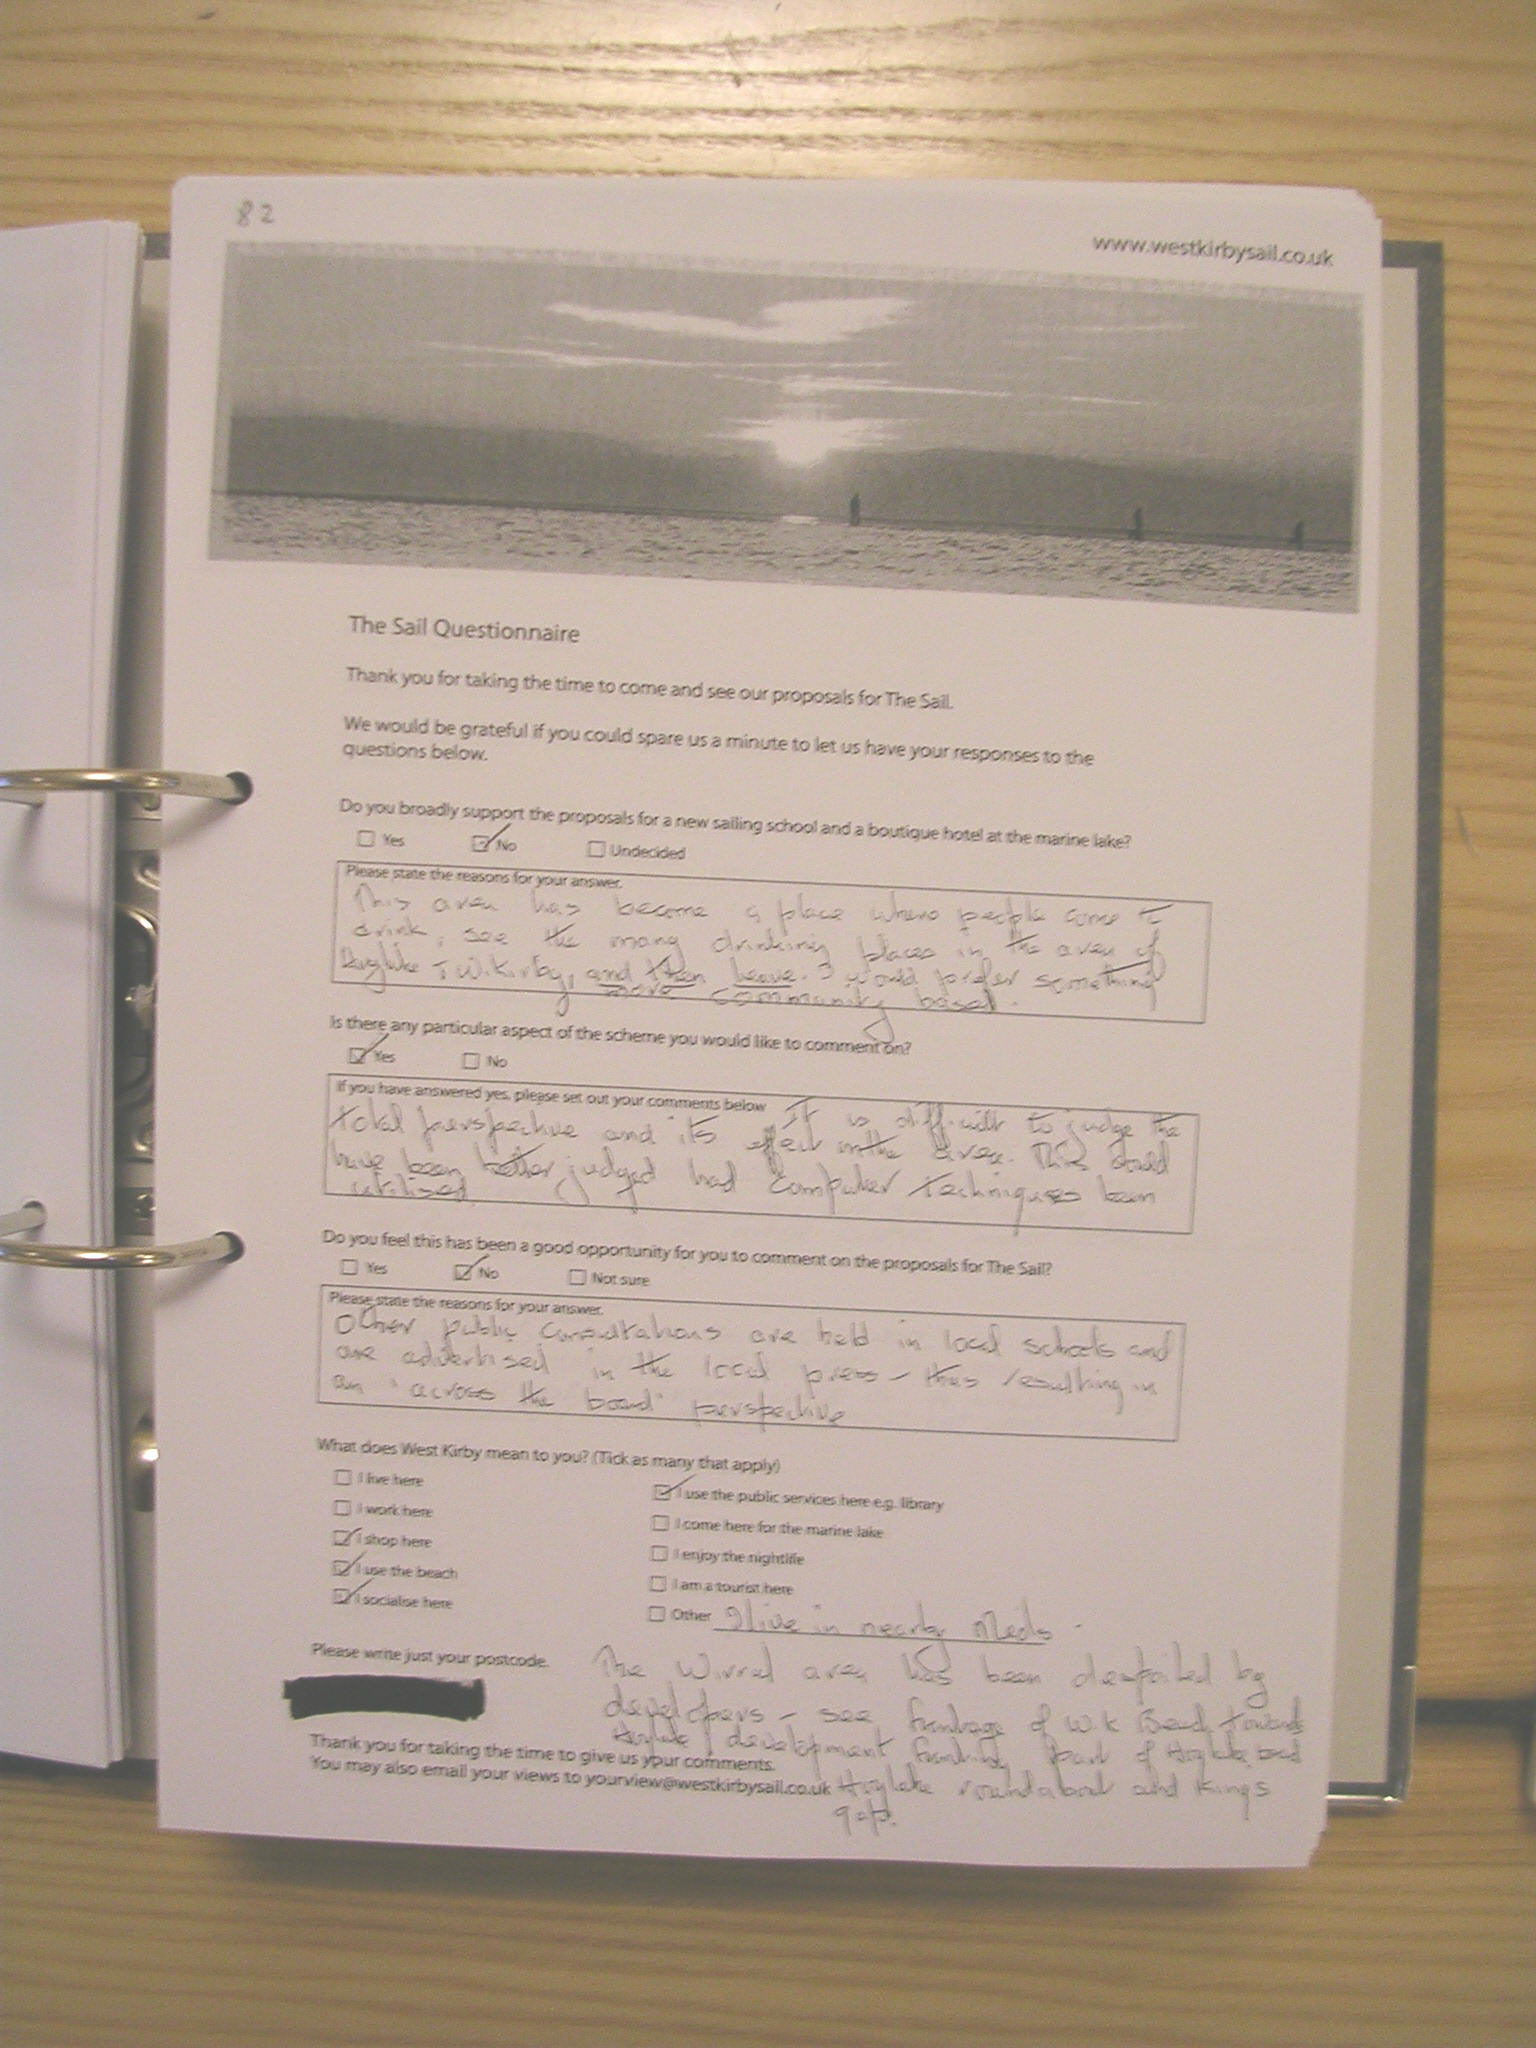 82
www.westkirbysail.co.uk
The Sail Questionnaire
Thank you for taking the time to come and see our proposals for The Sail.
We would be grateful if you could spare us a minute to let us have your responses to the
questions below.
Do you broadly support the proposals for a new sailing school and a boutique hotel at the marine lake?
Yes No Undecided
Please state the reasons for your answer.
This area has become a place where people come to
drink, see the many drinking places in the area of
Hoylake + W.Kirby, and then leave. I would prefer something
more community based.
Is there any particular aspect of the scheme you would like to comment on?
Yes No
If you have answered yes, please set out your comments below It is difficult to judge the
total perspective and its effect in the area. This could
have been better judged had computer techniques been
utilised
Do you feel this has been a good opportunity for you to comment on the proposals for The Sail?
Yes No Not sure
Please state the reasons for your answer.
Other public consultations are held in local schools and
are advertised in the local press - thus resulting in
an "across the board" perspective
What does West Kirby mean to you? (Tick as many that apply)
I live here
I work here
I shop here
I use the beach
I socialise here
I use the public services here e.g. library
I come here for the marine lake
I enjoy the nightlife
I am a tourist here
Other I live in nearby Meols
Please write just your postcode.
The Wirral area has been despoiled by
developers - see frontage of W.K Beach towards
Hoylake, development fronting part of Hoylake
Hoylake roundabout and Kings
gap.
Thank you for taking the time to give us your comments.
You may also email your views to yourview@westkirbysail.co.uk